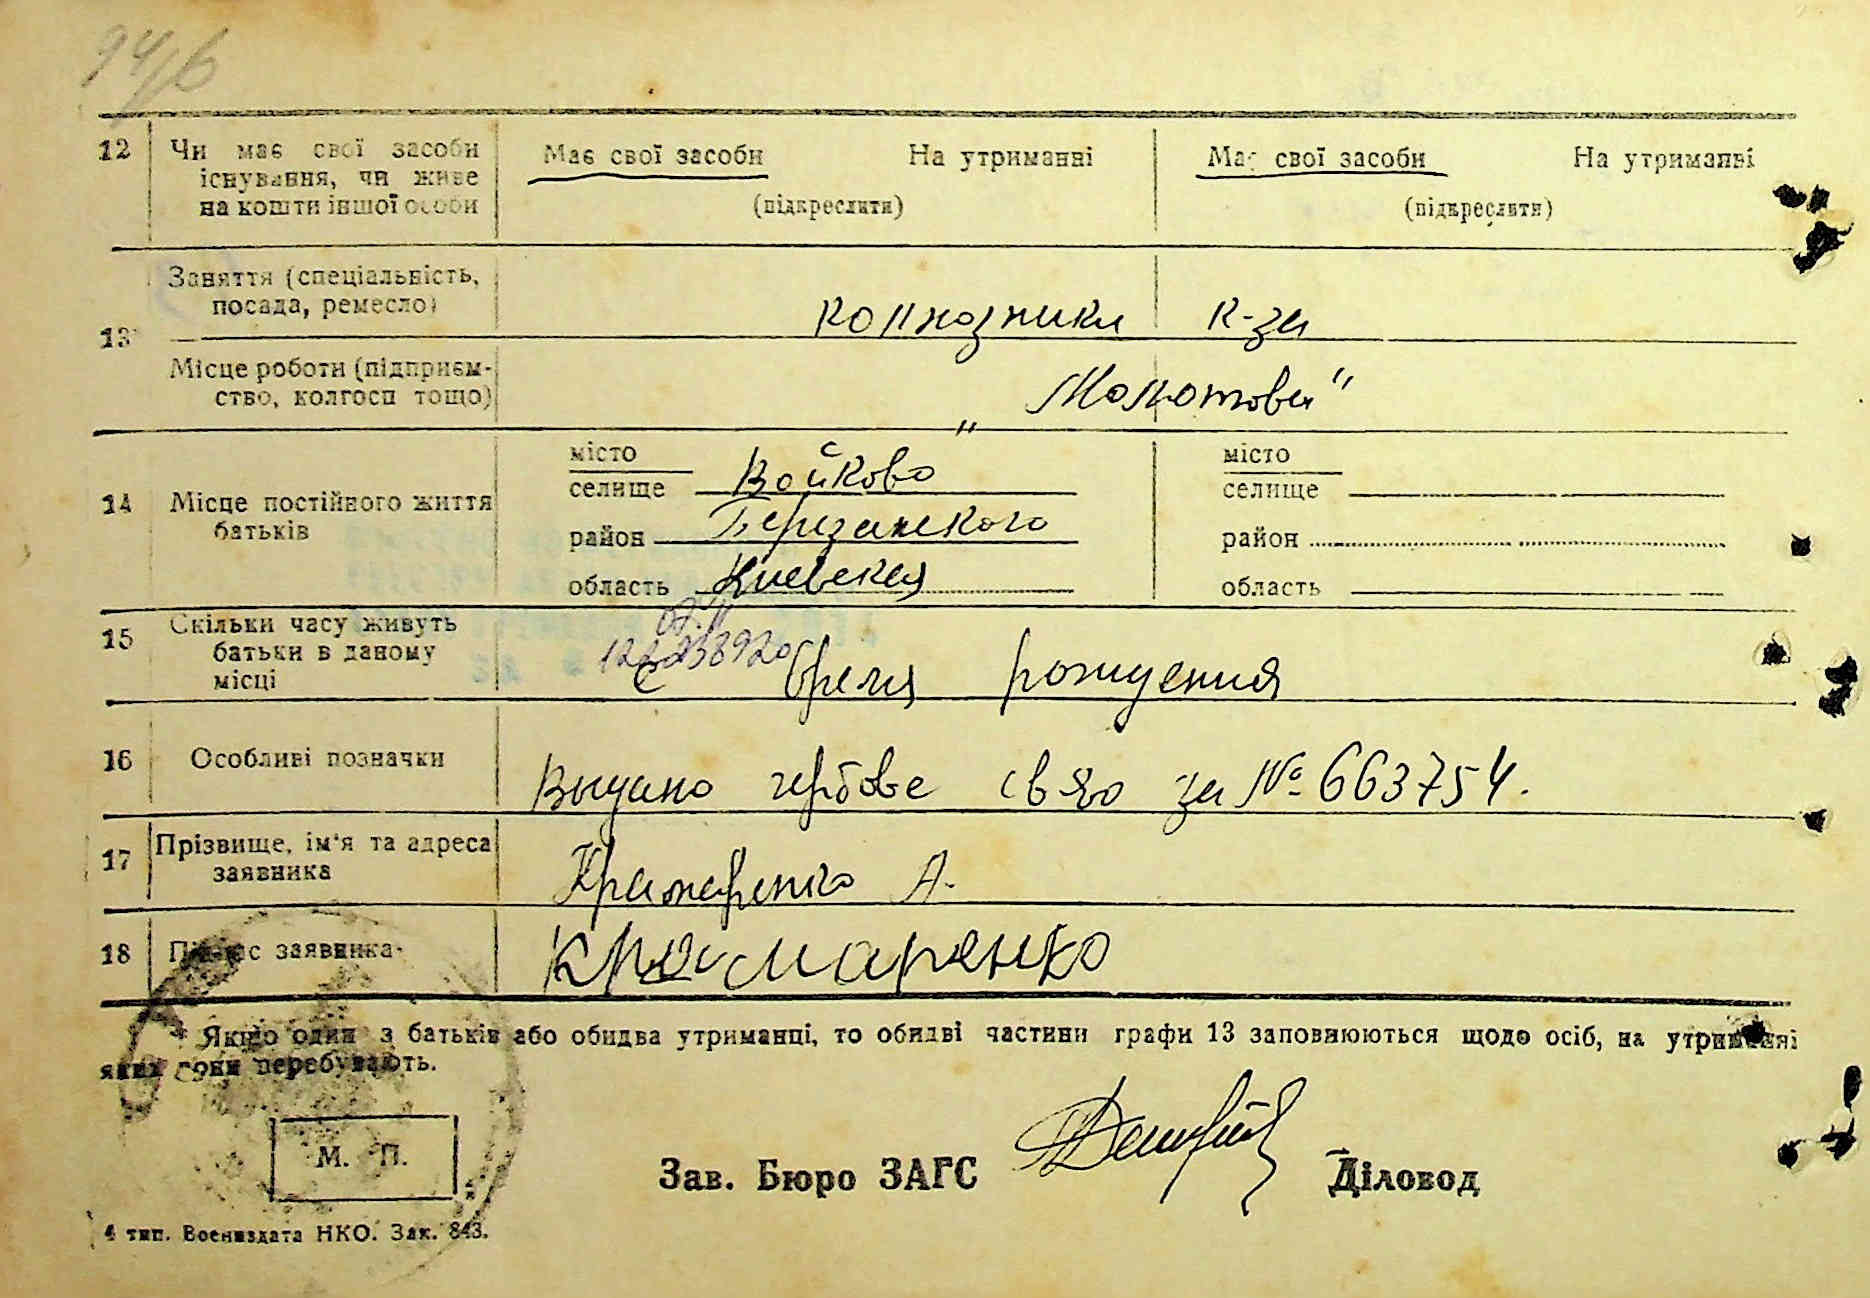 94/6
12 Чи має свої засоби Має свої засоби На утриманні Має свої засоби На утриманні
існування, чи живе
на кошти іншої особи (підкреслити) (підкреслити)
Заняття (спеціальність,
посада, ремесло) колхозники к-за
13
Місце роботи (підприєм-
ство, колгосп тощо) „Молотова"
місто місто
селище Войково селище
14 Місце постійного життя
батьків район Березанского район
область Киевская область
15 Скільки часу живуть
батьки в даному
місці с время рождения
16 Особливі позначки Выдано гербове св-во за № 663754.
17 Прізвище, ім'я та адреса
заявника Крамаренко А.
18 Підпис заявника Крамаренко
* Якщо один з батьків або обидва утриманці, то обидві частини графи 13 заповнюються щодо осіб, на утриманні
яких вони перебувають.
М. П.
Зав. Бюро ЗАГС Діловод
4 тип. Воениздата НКО. Зак. 843.